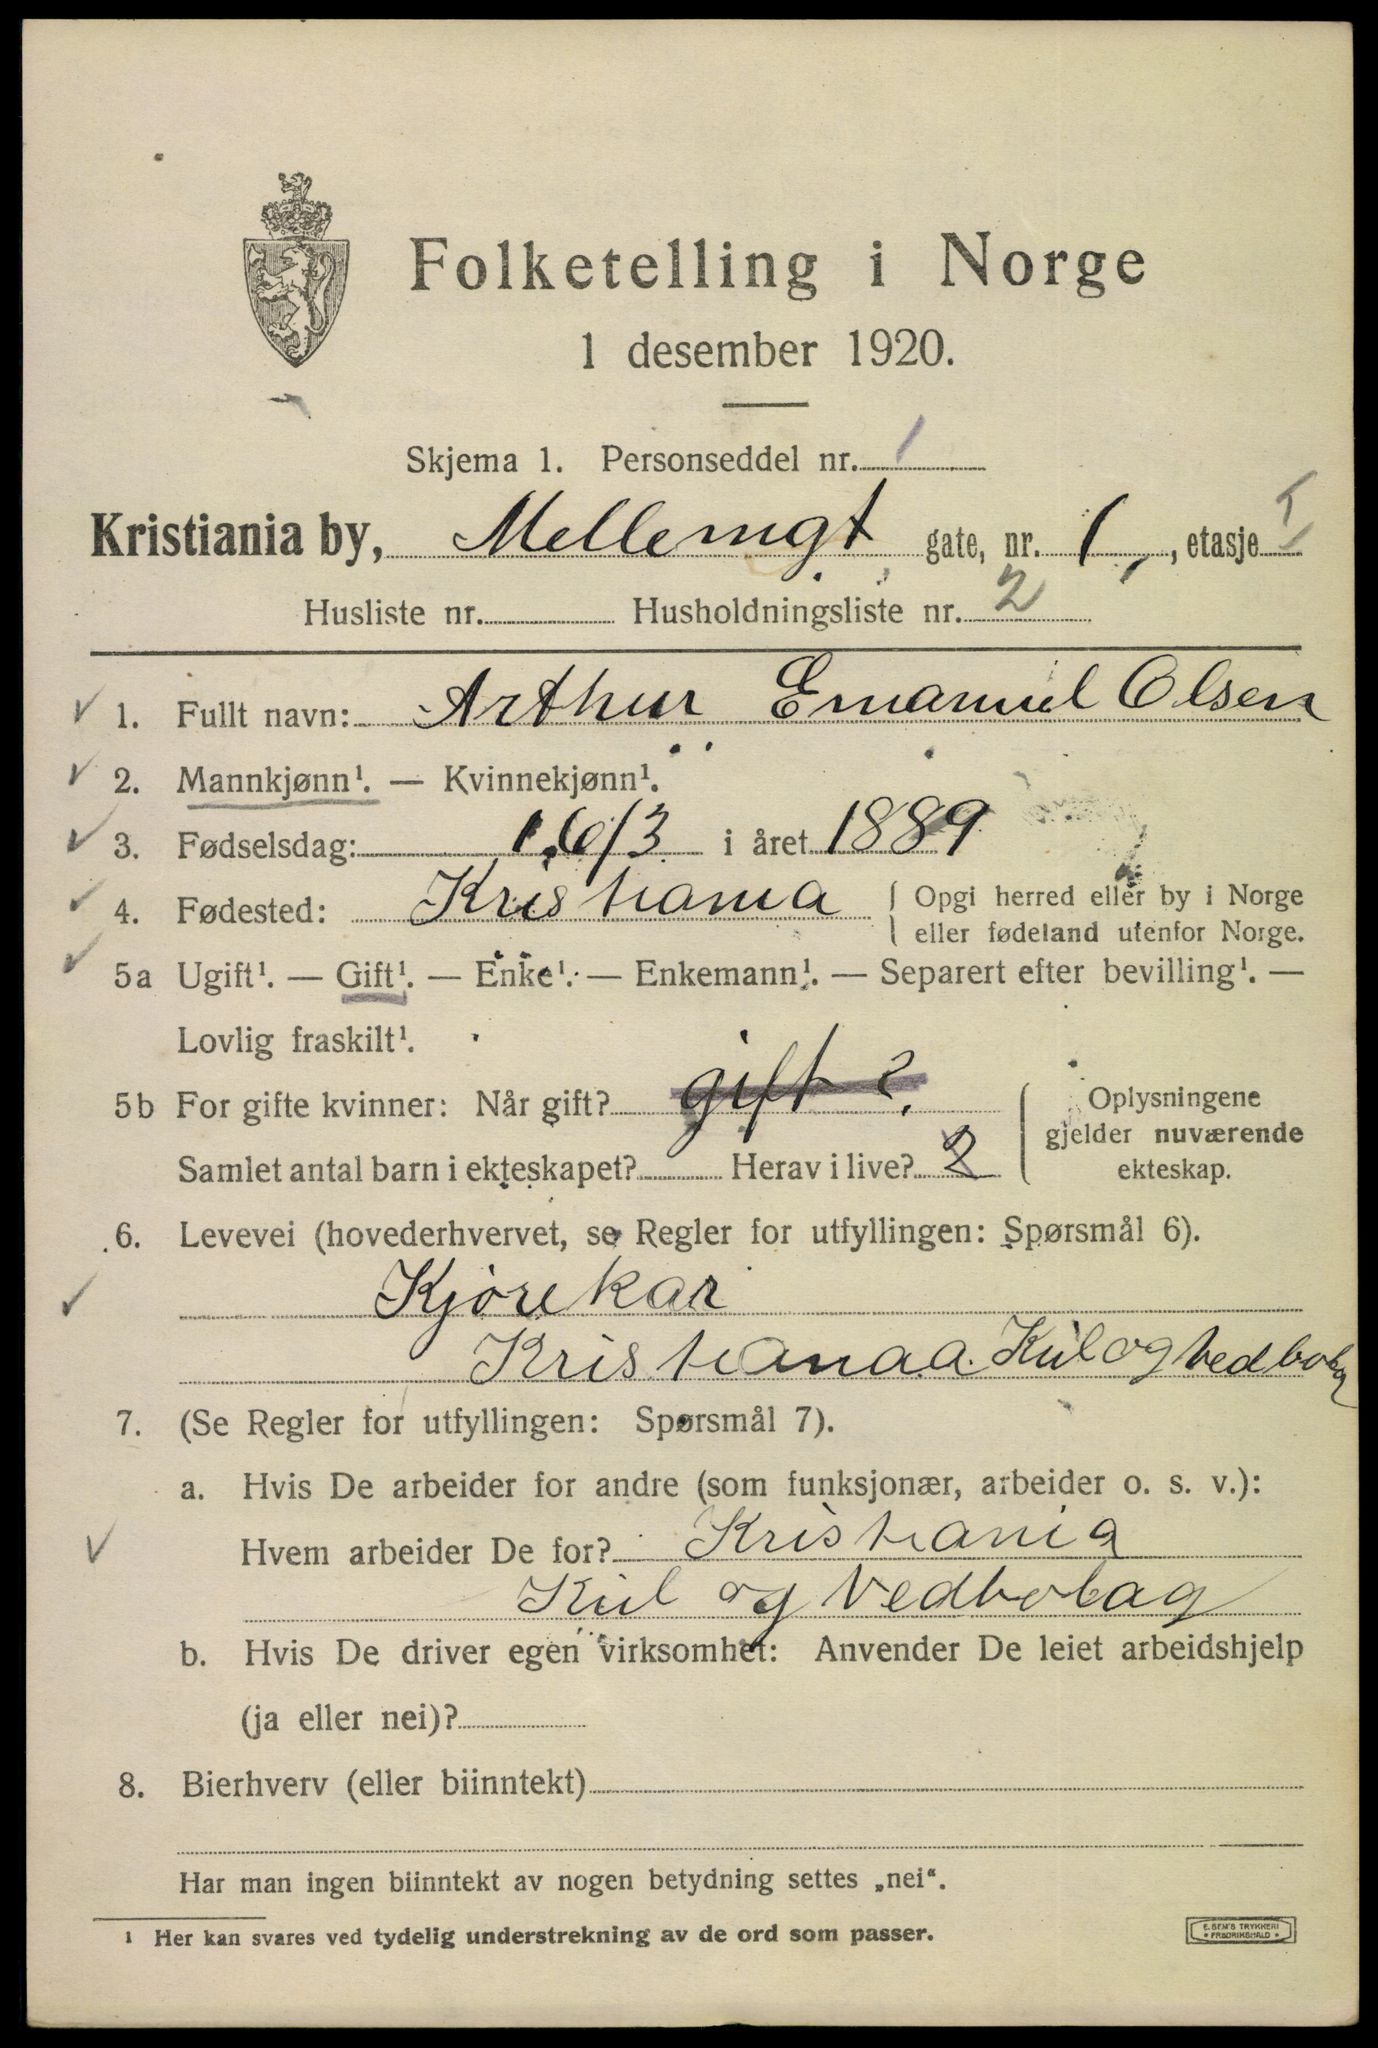 Folketelling i Norge
1 desember 1920.
Skjema 1. Personseddel nr. 1
Kristiania by, Mellemgt gate, nr. 1, etasje I
Husliste nr. Husholdningsliste nr. 2
1. Fullt navn: Arthur Emanuel Olsen
2. Mannkjønn¹. — Kvinnekjønn¹.
3. Fødselsdag: 16/3 i året 1889
4. Fødested: Kristiania { Opgi herred eller by i Norge
eller fødeland utenfor Norge.
5a Ugift¹. — Gift¹. — Enke¹. — Enkemann¹. — Separert efter bevilling¹. —
Lovlig fraskilt¹.
5b For gifte kvinner: Når gift? gift 2. { Oplysningene
gjelder nuværende
Samlet antal barn i ekteskapet? Herav i live? 2 ekteskap.
6. Levevei (hovederhvervet, se Regler for utfyllingen: Spørsmål 6).
Kjörekar
Kristianaa. Kul og Vedbolag
7. (Se Regler for utfyllingen: Spørsmål 7).
a. Hvis De arbeider for andre (som funksjonær, arbeider o. s. v.):
Hvem arbeider De for? Kristiania
Kul og Vedbolag
b. Hvis De driver egen virksomhet: Anvender De leiet arbeidshjelp
(ja eller nei)?
8. Bierhverv (eller biinntekt)
Har man ingen biinntekt av nogen betydning settes „nei“.
¹ Her kan svares ved tydelig understrekning av de ord som passer.
E. SEM'S TRYKKERI
* FREDRIKSHALD *